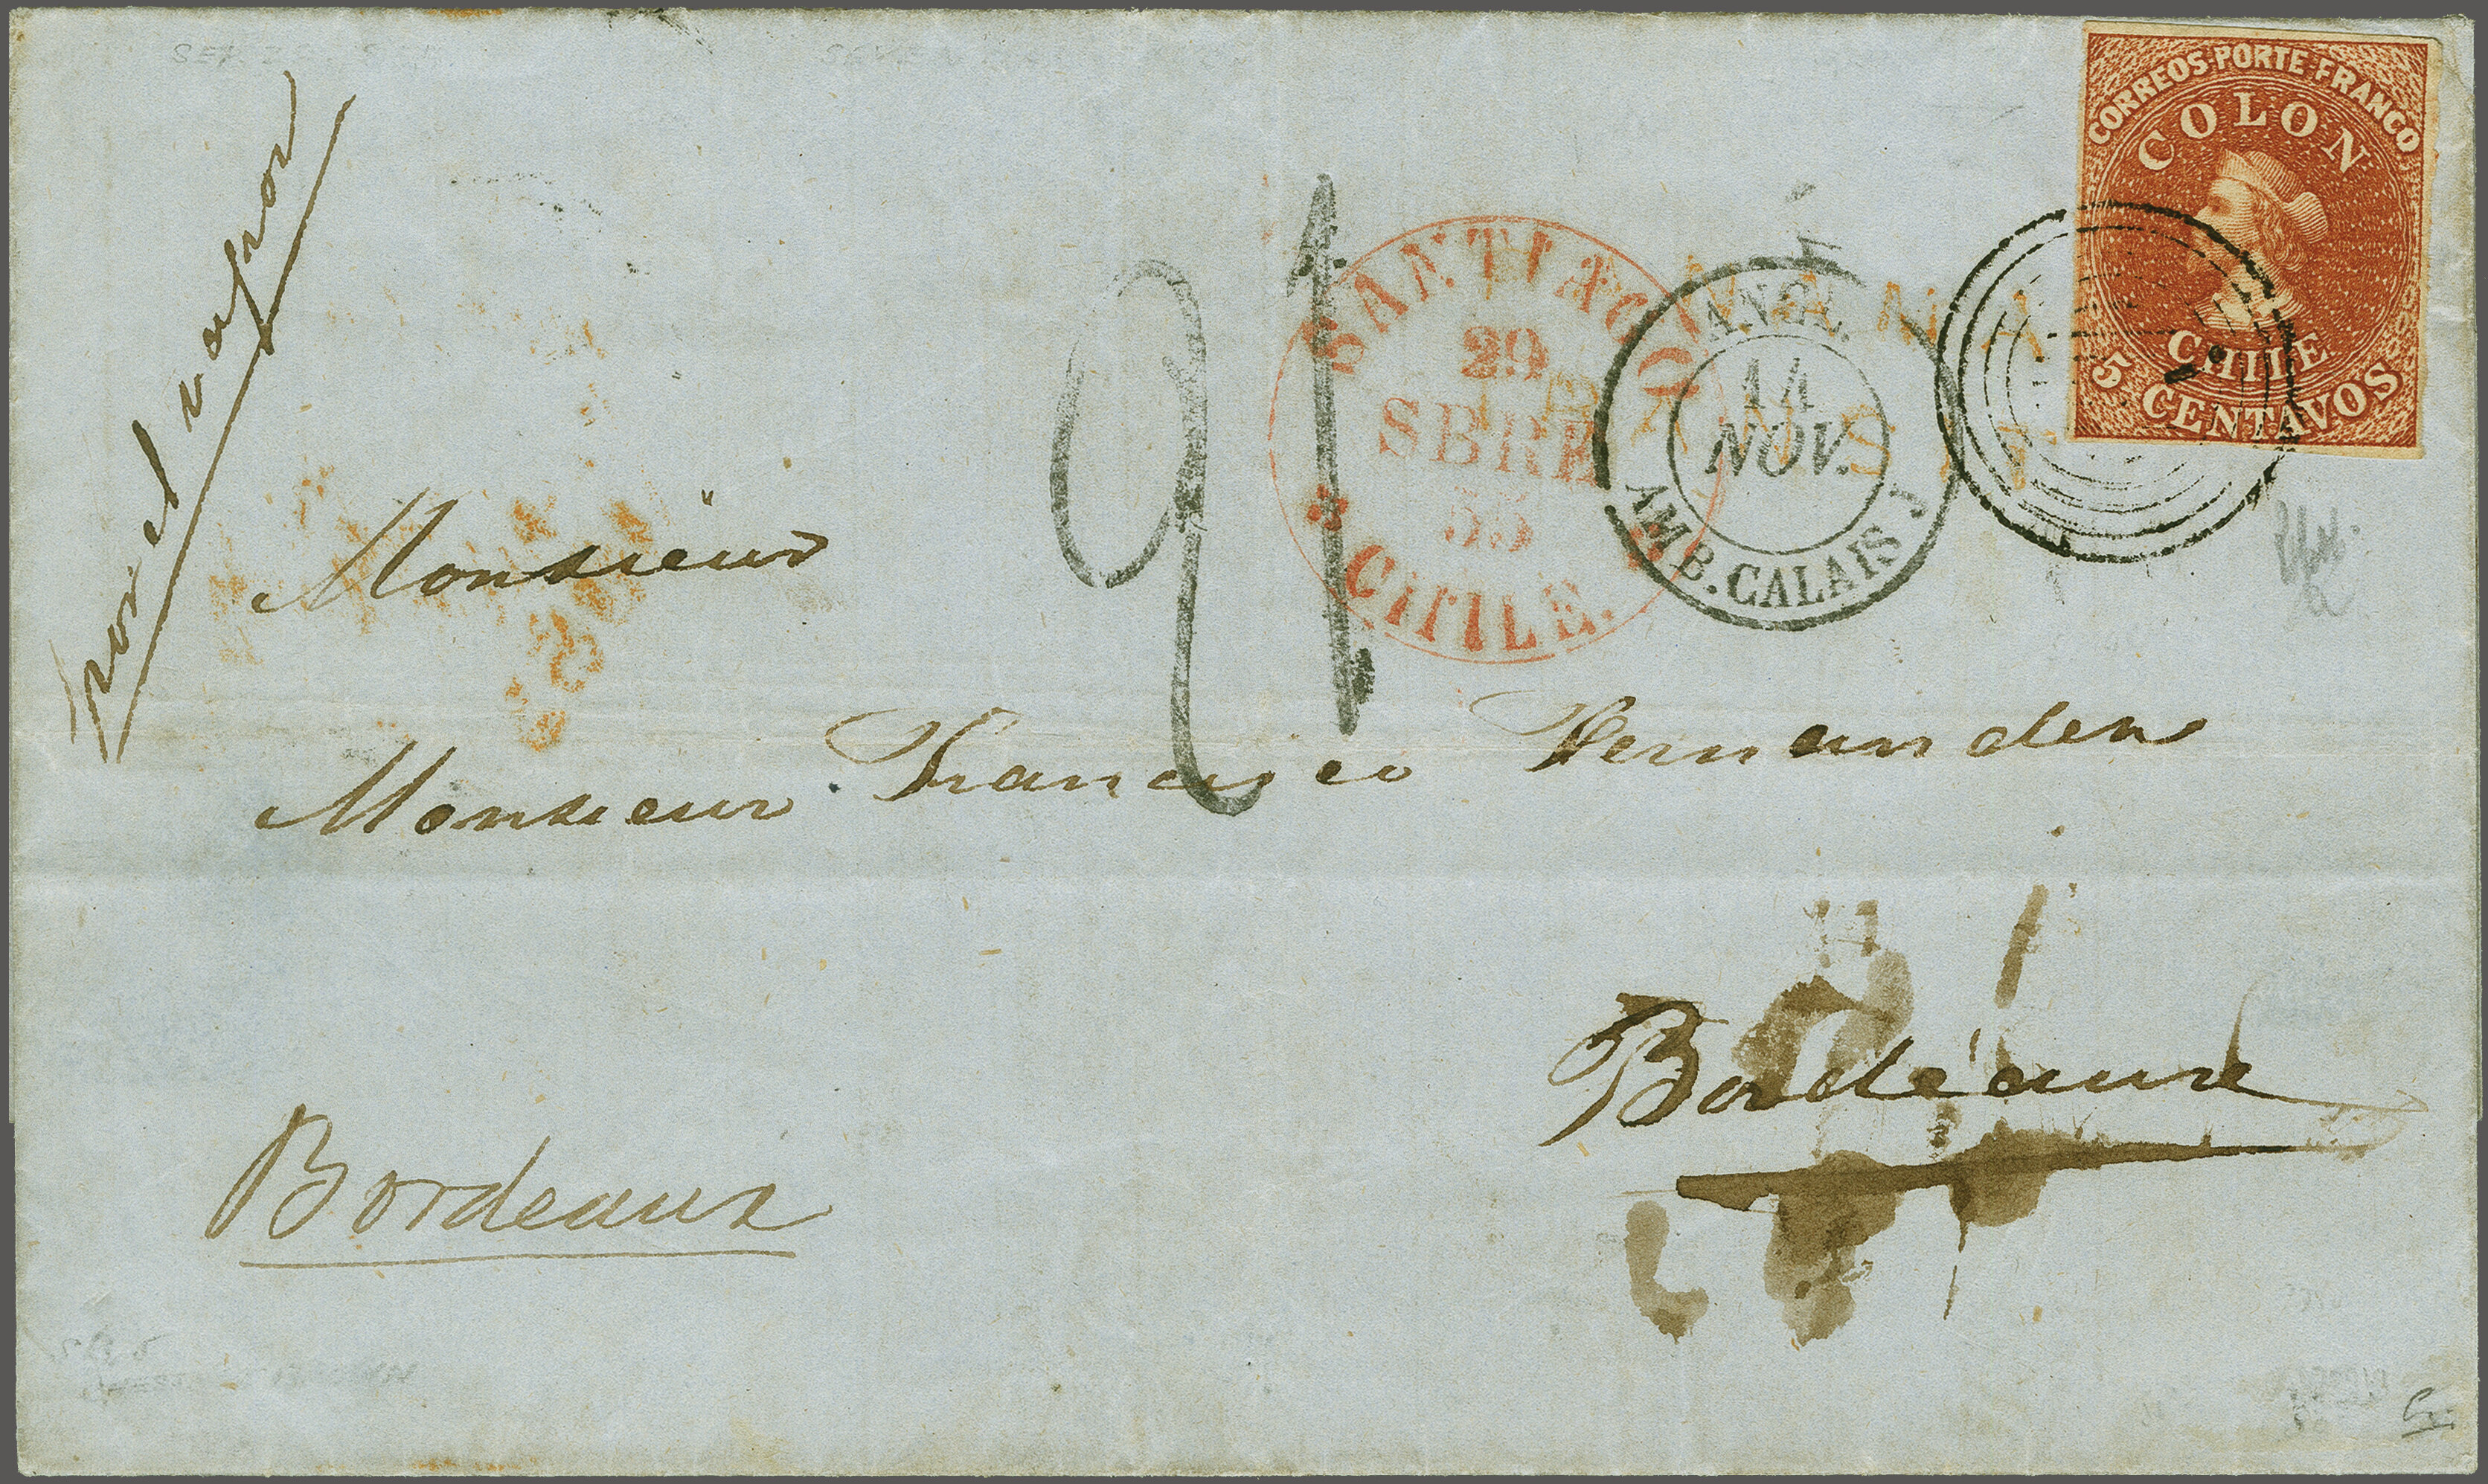 por el vapor
CORREOS·PORTE·FRANCO
COLON
CHILE
5 CENTAVOS
SANTIAGO
29
SBRE
55
CHILE.
ANGL.
14
NOV.
AMB. CALAIS
Monsieur
Monsieur Francisco Hernandez
Bordéaux
Bordeaux